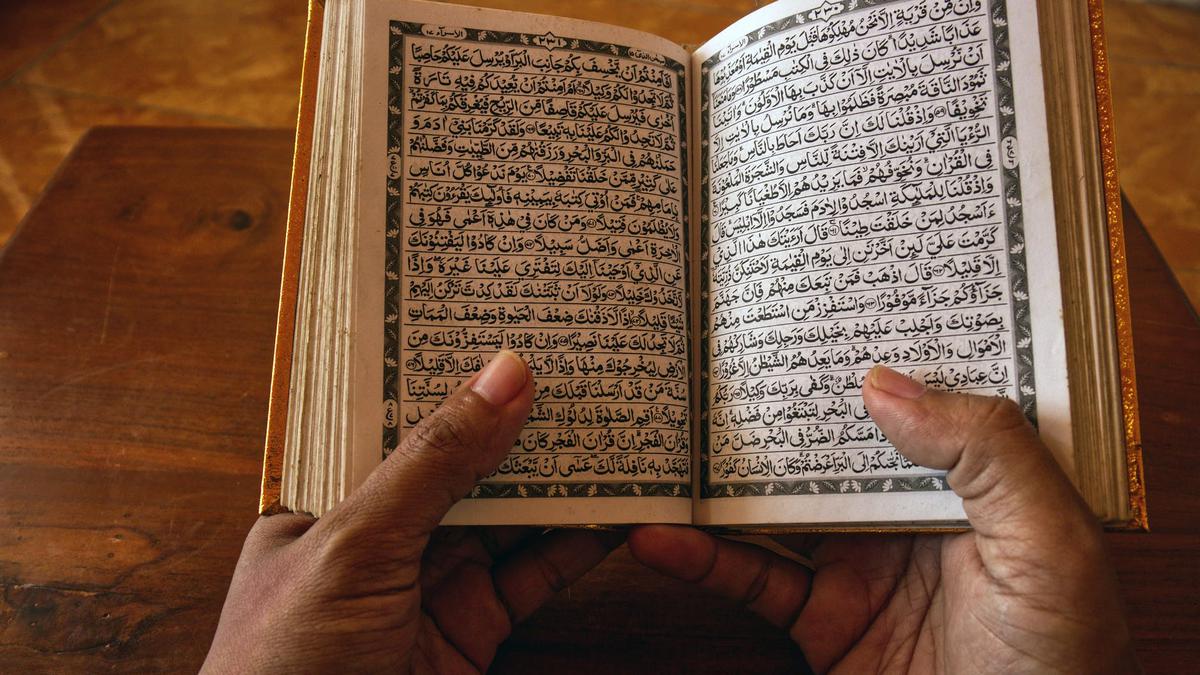 الاسرآء ١٧
٢٣٠
وَاِنْ مِّنْ قَرْيَةٍ اِلَّا نَحْنُ مُهْلِكُوْهَا قَبْلَ يَوْمِ الْقِيٰمَةِ اَوْ مُعَذِّبُوْهَا
عَذَابًا شَدِيْدًا كَانَ ذٰلِكَ فِى الْكِتٰبِ مَسْطُوْرًا وَمَا مَنَعَنَآ
اَنْ نُّرْسِلَ بِالْاٰيٰتِ اِلَّآ اَنْ كَذَّبَ بِهَا الْاَوَّلُوْنَ وَاٰتَيْنَا
ثَمُوْدَ النَّاقَةَ مُبْصِرَةً فَظَلَمُوْا بِهَا وَمَا نُرْسِلُ بِالْاٰيٰتِ اِلَّا
تَخْوِيْفًا وَاِذْ قُلْنَا لَكَ اِنَّ رَبَّكَ اَحَاطَ بِالنَّاسِ وَمَا جَعَلْنَا
الرُّءْيَا الَّتِيْٓ اَرَيْنٰكَ اِلَّا فِتْنَةً لِّلنَّاسِ وَالشَّجَرَةَ الْمَلْعُوْنَةَ
فِى الْقُرْاٰنِ وَنُخَوِّفُهُمْ فَمَا يَزِيْدُهُمْ اِلَّا طُغْيَانًا كَبِيْرًا
وَاِذْ قُلْنَا لِلْمَلٰٓئِكَةِ اسْجُدُوْا لِاٰدَمَ فَسَجَدُوْٓا اِلَّآ اِبْلِيْسَ قَالَ
ءَاَسْجُدُ لِمَنْ خَلَقْتَ طِيْنًا قَالَ اَرَءَيْتَكَ هٰذَا الَّذِيْ
كَرَّمْتَ عَلَيَّ لَئِنْ اَخَّرْتَنِ اِلٰى يَوْمِ الْقِيٰمَةِ لَاَحْتَنِكَنَّ ذُرِّيَّتَهٗٓ
اِلَّا قَلِيْلًا قَالَ اذْهَبْ فَمَنْ تَبِعَكَ مِنْهُمْ فَاِنَّ جَهَنَّمَ
جَزَآؤُكُمْ جَزَآءً مَّوْفُوْرًا وَاسْتَفْزِزْ مَنِ اسْتَطَعْتَ مِنْهُمْ
بِصَوْتِكَ وَاَجْلِبْ عَلَيْهِمْ بِخَيْلِكَ وَرَجِلِكَ وَشَارِكْهُمْ فِى
الْاَمْوَالِ وَالْاَوْلَادِ وَعِدْهُمْ وَمَا يَعِدُهُمُ الشَّيْطٰنُ اِلَّا غُرُوْرًا
اِنَّ عِبَادِيْ لَيْسَ سُلْطٰنٌ وَكَفٰى بِرَبِّكَ وَكِيْلًا رَبُّكُمُ
فِى الْبَحْرِ لِتَبْتَغُوْا مِنْ فَضْلِهٖ اِنَّهٗ
مَسَّكُمُ الضُّرُّ فِى الْبَحْرِ ضَلَّ مَنْ
نَجّٰىكُمْ اِلَى الْبَرِّ اَعْرَضْتُمْ وَكَانَ الْاِنْسَانُ كَفُوْرًا
٢٣١
الاسرآء ١٧
اَفَاَمِنْتُمْ اَنْ يَّخْسِفَ بِكُمْ جَانِبَ الْبَرِّ اَوْ يُرْسِلَ عَلَيْكُمْ حَاصِبًا
ثُمَّ لَا تَجِدُوْا لَكُمْ وَكِيْلًا اَمْ اَمِنْتُمْ اَنْ يُّعِيْدَكُمْ فِيْهِ تَارَةً
اُخْرٰى فَيُرْسِلَ عَلَيْكُمْ قَاصِفًا مِّنَ الرِّيْحِ فَيُغْرِقَكُمْ بِمَا كَفَرْتُمْ
ثُمَّ لَا تَجِدُوْا لَكُمْ عَلَيْنَا بِهٖ تَبِيْعًا وَلَقَدْ كَرَّمْنَا بَنِيْٓ اٰدَمَ وَ
حَمَلْنٰهُمْ فِى الْبَرِّ وَالْبَحْرِ وَرَزَقْنٰهُمْ مِّنَ الطَّيِّبٰتِ وَفَضَّلْنٰهُمْ
عَلٰى كَثِيْرٍ مِّمَّنْ خَلَقْنَا تَفْضِيْلًا يَوْمَ نَدْعُوْا كُلَّ اُنَاسٍ
بِاِمَامِهِمْ فَمَنْ اُوْتِيَ كِتٰبَهٗ بِيَمِيْنِهٖ فَاُولٰٓئِكَ يَقْرَءُوْنَ كِتٰبَهُمْ
وَلَا يُظْلَمُوْنَ فَتِيْلًا وَمَنْ كَانَ فِيْ هٰذِهٖٓ اَعْمٰى فَهُوَ فِى
الْاٰخِرَةِ اَعْمٰى وَاَضَلُّ سَبِيْلًا وَاِنْ كَادُوْا لَيَفْتِنُوْنَكَ
عَنِ الَّذِيْٓ اَوْحَيْنَآ اِلَيْكَ لِتَفْتَرِيَ عَلَيْنَا غَيْرَهٗ وَاِذًا
لَّاتَّخَذُوْكَ خَلِيْلًا وَلَوْلَآ اَنْ ثَبَّتْنٰكَ لَقَدْ كِدْتَّ تَرْكَنُ اِلَيْهِمْ
شَيْئًا قَلِيْلًا اِذًا لَّاَذَقْنٰكَ ضِعْفَ الْحَيٰوةِ وَضِعْفَ الْمَمَاتِ
ثُمَّ لَا تَجِدُ لَكَ عَلَيْنَا نَصِيْرًا وَاِنْ كَادُوْا لَيَسْتَفِزُّوْنَكَ مِنَ
الْاَرْضِ لِيُخْرِجُوْكَ مِنْهَا وَاِذًا لَّا خِلٰفَكَ اِلَّا قَلِيْلًا
سُنَّةَ مَنْ قَدْ اَرْسَلْنَا قَبْلَكَ مِنْ لِسُنَّتِنَا
تَحْوِيْلًا اَقِمِ الصَّلٰوةَ لِدُلُوْكِ
وَقُرْاٰنَ الْفَجْرِ اِنَّ قُرْاٰنَ الْفَجْرِ كَانَ
فَتَهَجَّدْ بِهٖ نَافِلَةً لَّكَ عَسٰٓى اَنْ يَّبْعَثَكَ